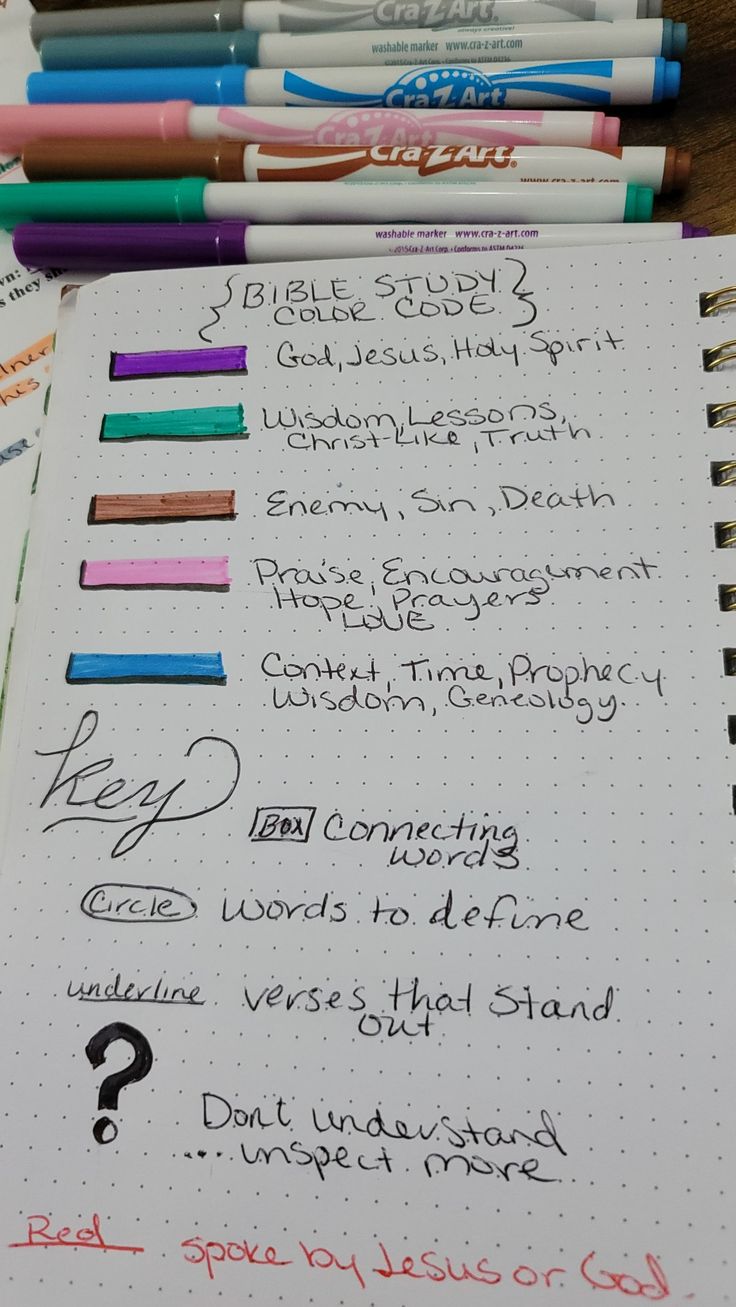 Cra-Z-Art
always creative!
washable marker www.cra-z-art.com
©2015 Cra-Z-Art Corp. • Conforms to ASTM D4236
Cra-Z-Art
Cra-Z-Art
Cra-Z-Art
www.cra-z-art.com
washable marker www.cra-z-art.com
©2015 Cra-Z-Art Corp. • Conforms to ASTM D4236
{BIBLE STUDY
COLOR CODE}
God, Jesus, Holy Spirit
Wisdom, Lessons,
Christ-Like, Truth
Enemy, Sin, Death
Praise, Encouragement
Hope, Prayers
LOVE
Context, Time, Prophecy
Wisdom, Geneology
Key
Box Connecting
words
Circle words to define
underline verses that stand
out
?
Dont understand
... unspect more
Red spoke by Jesus or God.